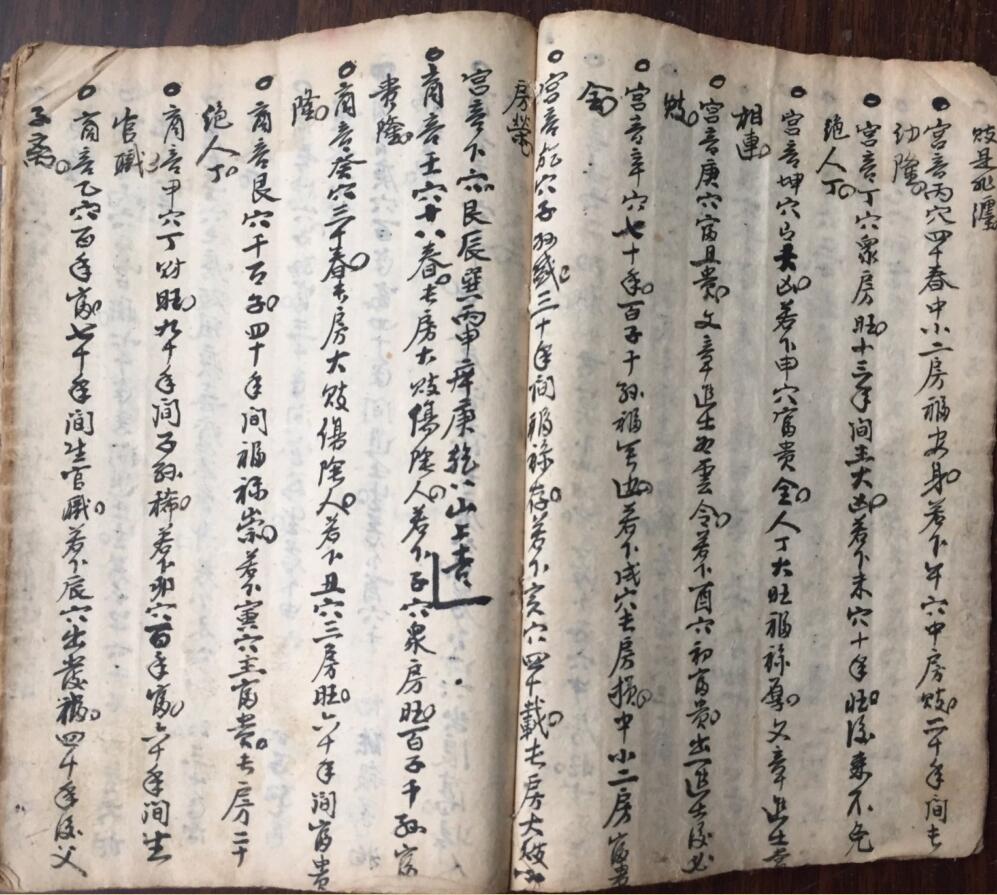 敗是死殭
○宮音丙穴四十春中小二房福安身若下午穴中房敗二十年間長
幼隆
○宮音丁穴眾房旺十三年間主大凶若下未穴十年旺後來不免
絕人丁
○宮音坤穴凶若下申穴富貴全人丁大旺福祿厚文章進士
相連
○宮音庚穴富且貴文章進士必全若下酉穴初富貴出進士後必
敗
○宮音辛穴七十年百子千孫福若下戌穴長房損中小二房富貴
全
○宮音乾穴子孫盛三十年間福祿存若下亥穴四十載長房大敗小
房榮
宮音下穴艮辰巽丙申辛庚乾八山上吉
○商音壬穴十八春長房大敗傷陰人若下子穴眾房旺百子千孫富
貴隆
○商音癸穴三十春長房大敗傷陰人若下丑穴三房旺六十年間富貴
隆
○商音艮穴千百子四十年間福祿崇若下寅穴主富貴長房二十
絕人丁
○商音甲穴丁財旺九十年間子孫稀若下卯穴百年富六十年間生
官職
○商音乙穴百年富七十年間生官職若下辰穴出發福四十年後父
子離